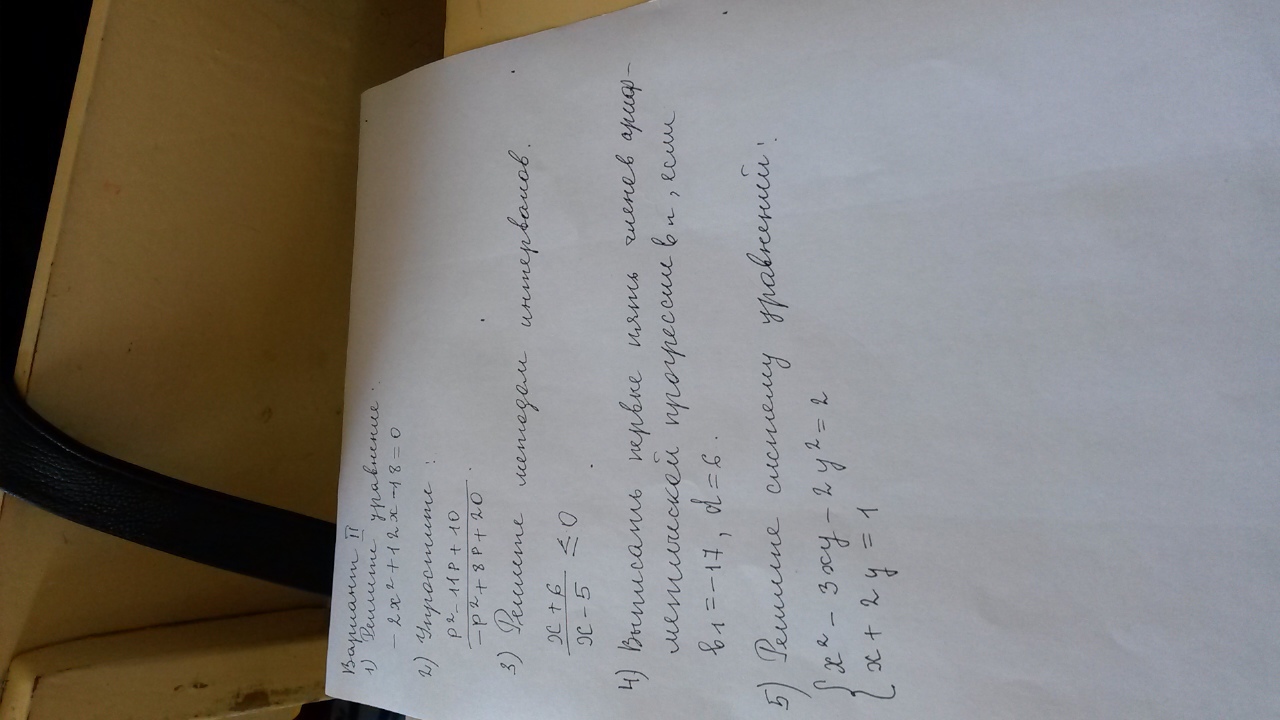 Вариант II
1) Решите уравнение:
- 2x² + 12x - 18 = 0
2) Упростите:
p² - 11p + 10
-p² + 8p + 20
3) Решите методом интервалов.
x + 6
x - 5 ≤ 0
4) Выписать первые пять членов ариф-
метической прогрессии bₙ, если
b₁ = -17, d = 6.
5) Решите систему уравнений:
{ x² - 3xy - 2y² = 2
x + 2y = 1